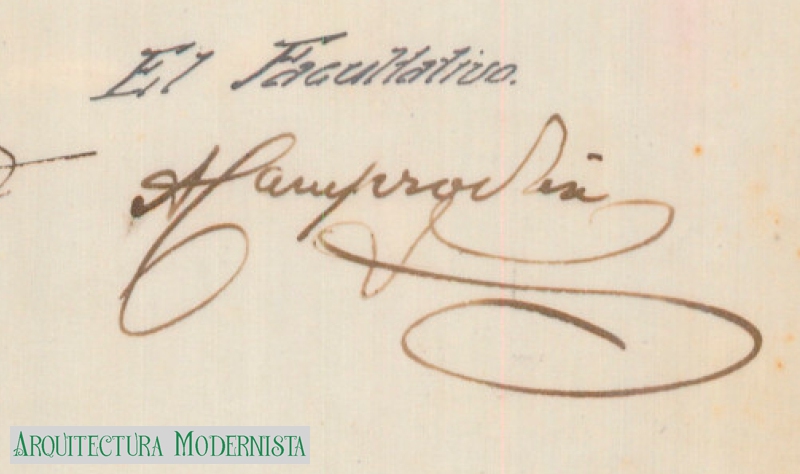 El Facultativo.
ACamprodón
Arquitectura Modernista